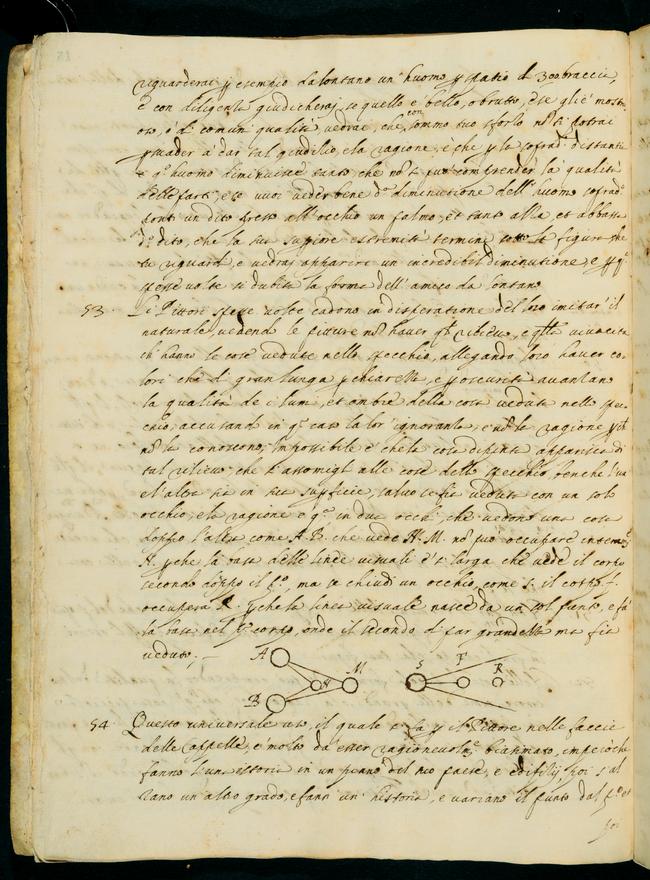 riguarderai p esempio da lontano un huomo p spatio di 300 braccia,
e con diligenza giudicherai, se quello è bello, o brutto, o se gli è mostr
oso, o di comun qualità, vedrai, che con sommo tuo sforzo nõ ti potrai
psuader à dar tal giudizio, e la ragione è che p la sofrad.ta distantia
e q.o huomo diminuisce tanto che nõ si può comprender la qualità
delle parti, e se vuoi veder bene d.a diminutione dell'huomo sofrad.o
ponti un dito presso all'occhio un palmo, et tanto alza et abbassa
d.o dito, che la sua supiore estremità termini sotto la figura che
tu riguardi, e vedrai apparire un incredibil diminutione, e p q.o
spesse volte si dubita la forma dell'amico da lontano
53. Li Pittori spesse volte cadono in disperatione del loro imitar' il
naturale, vedendo le pitture nõ haver q.l rilievo, e q.lla vivacità
ch' hanno le cose vedute nello specchio, allegando loro haver co-
lori che di gran lunga p chiarezza, e p oscurità avanzano
la qualità de i lumi, et ombre della cosa veduta nello spe-
chio, accusando in q.o caso la lor' ignoranza, e nõ la ragione pchè
nõ la conoscono, Impossibile è che la cosa dipinta apparisca di
tal rilievo che s'assomigli alle cose dello specchio, benche l'una
e l'altra sia in sua supficie, salvo se sia veduta con un solo
occhio, e la ragione è q.a in due occhi, che vedono una cosa
doppo l'altra come A. B. che vede N. M. nõ può occupare interam.te
N. pche la base delle linee visuali è si larga che vede il corpo
secondo doppo il p.o, ma se chiudi un occhio, come S. il corpo f.
occuperà R. pche la linea visuale nasce da un sol punto, e fà
la base nel p.o corpo, onde il secondo di par grandezza mai fia
veduto;
A M S T R
N
B
54. Questo universale uso, il quale si fa p il Pittore nelle faccie
delle Cappelle, è molto da esser ragionevolm.te biasimato, imperoche
fanno l'una istoria in un piano del suo paese, e edifitij, poi s'al
zano un altro grado, e fan un' historia, e variano il punto dal p.o et
poi